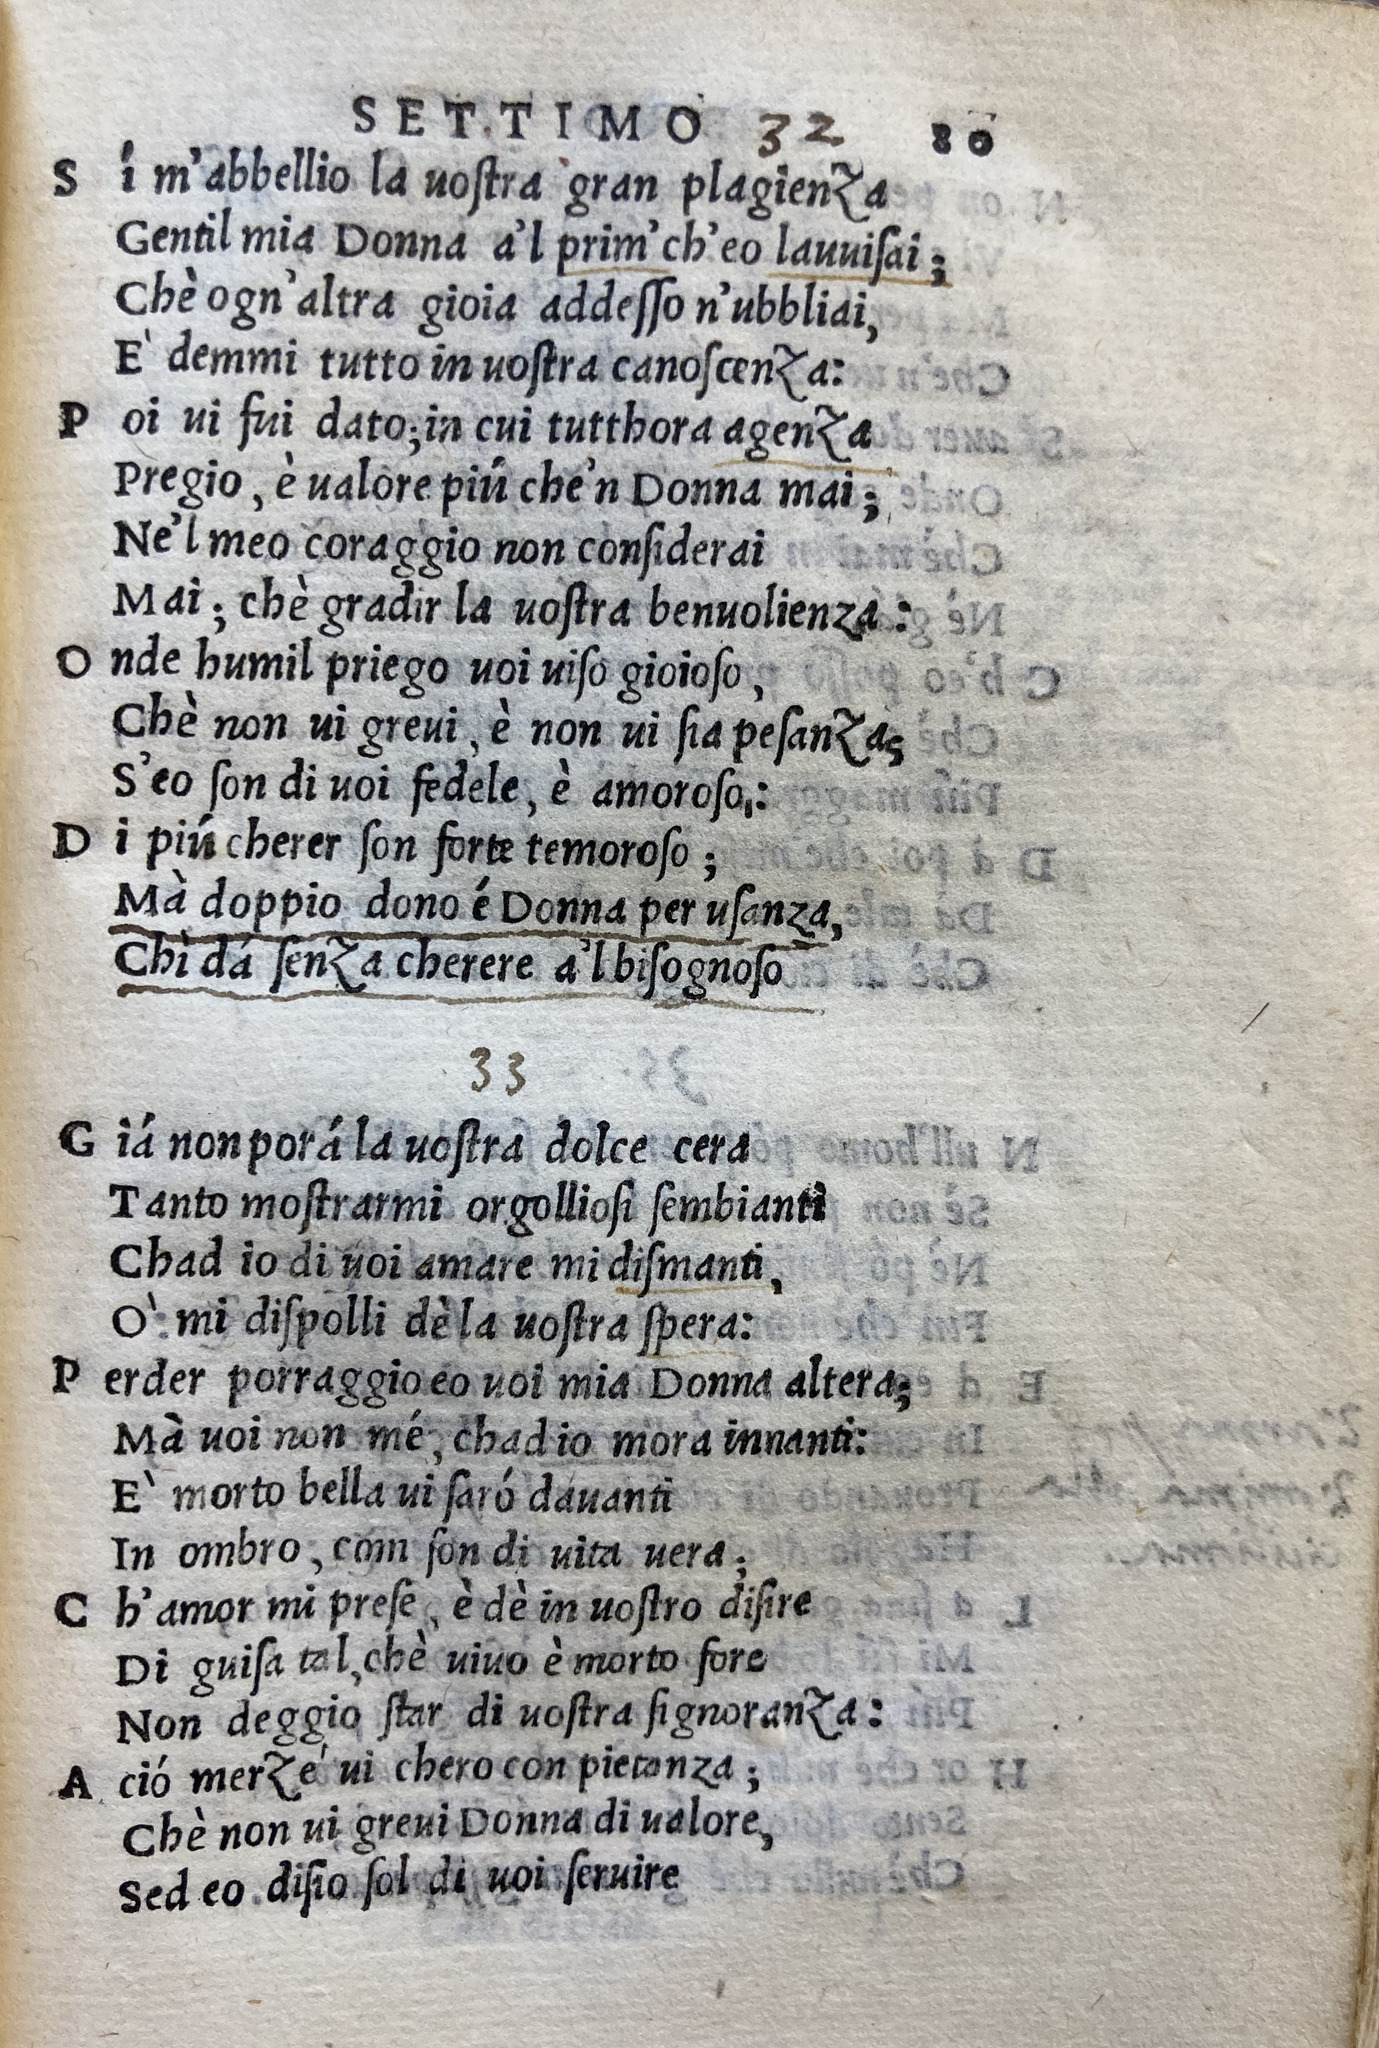 SETTIMO 32 80
Sí m'abbellio la uoſtra gran plagienza
Gentil mia Donna a'l prim' ch'eo lauuiſai;
Chè ogn'altra gioia addeſſo n'ubbliai,
E' demmi tutto in uoſtra canoſcenza:
Poi ui fui dato; in cui tutthora agenza
Pregio, è ualore piú che'n Donna mai;
Ne'l meo coraggio non conſiderai
Mai; chè gradir la uoſtra benuolienza:
Onde humil priego uoi uiſo gioioſo,
Chè non ui greui, è non ui ſia peſanza;
S'eo ſon di uoi fedele, è amoroſo:
Di piú cherer ſon forte temoroſo;
Mà doppio dono é Donna per uſanza,
Chi dá ſenza cherere a'l biſognoſo
33
Giá non porá la uoſtra dolce cera
Tanto moſtrarmi orgollioſi ſembianti
Chad io di uoi amare mi diſmanti,
O' mi diſpolli dè la uoſtra ſpera:
Perder porraggio eo uoi mia Donna altera;
Mà uoi non mé, chad io mora innanti:
E' morto bella ui ſaró dauanti
In ombro, com ſon di uita uera;
Ch'amor mi preſe, è dè in uoſtro diſire
Di guiſa tal, chè uiuo è morto fore
Non deggio ſtar di uoſtra ſignoranza:
Ació merzé ui chero con pietanza;
Chè non ui greui Donna di ualore,
Sed eo diſio ſol di uoi ſeruire